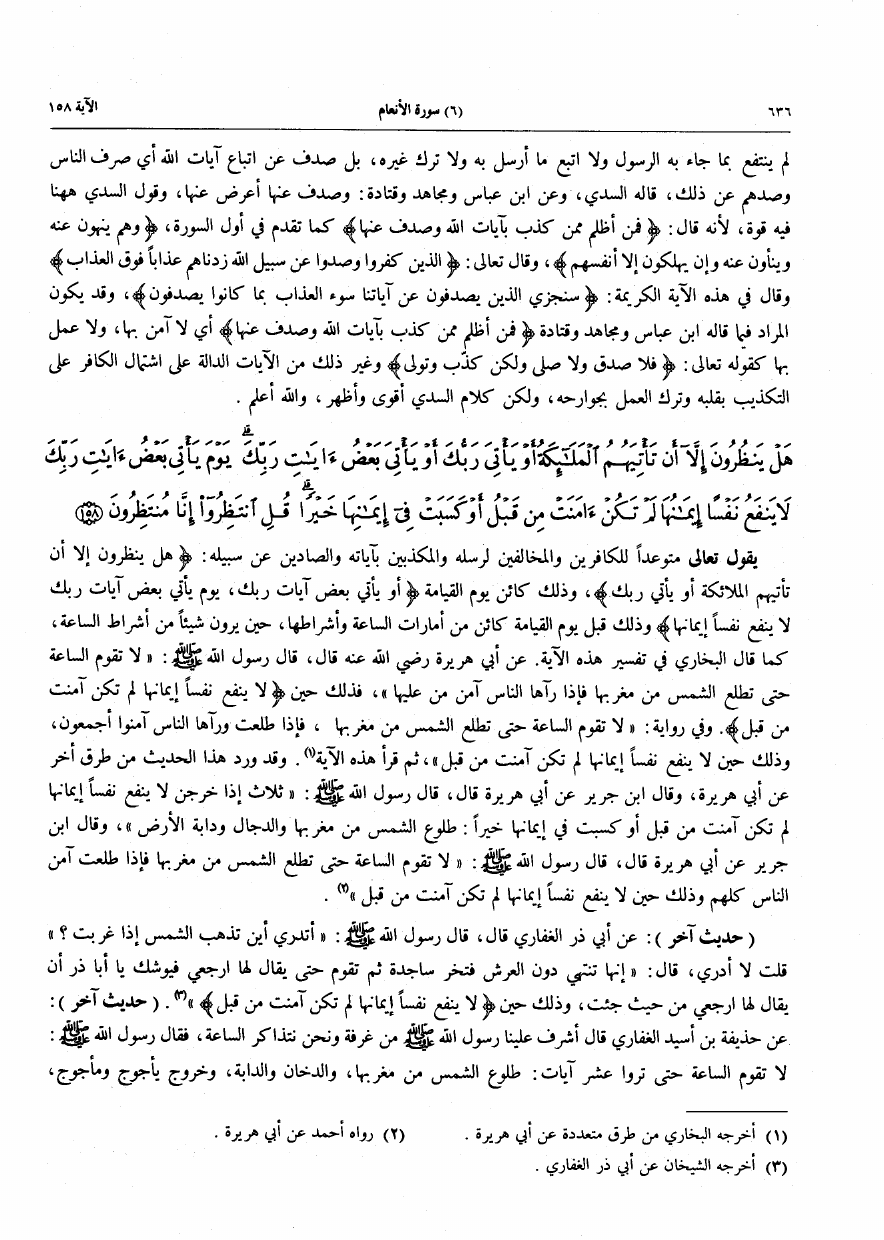 ٦٣٦ (٦) سورة الأنعام الآية ١٥٨
لم ينتفع بما جاء به الرسول ولا اتبع ما أرسل به ولا ترك غيره، بل صدف عن اتباع آيات الله أي صرف الناس
وصدهم عن ذلك، قاله السدي، وعن ابن عباس ومجاهد وقتادة: وصدف عنها أعرض عنها، وقول السدي ههنا
فيه قوة، لأنه قال: ﴿فمن أظلم ممن كذب بآيات الله وصدف عنها﴾ كما تقدم في أول السورة، ﴿وهم ينهون عنه
وينأون عنه وإن يهلكون إلا أنفسهم﴾، وقال تعالى: ﴿الذين كفروا وصدوا عن سبيل الله زدناهم عذاباً فوق العذاب﴾
وقال في هذه الآية الكريمة: ﴿سنجزي الذين يصدفون عن آياتنا سوء العذاب بما كانوا يصدفون﴾، وقد يكون
المراد فيما قاله ابن عباس ومجاهد وقتادة ﴿فمن أظلم ممن كذب بآيات الله وصدف عنها﴾ أي لا آمن بها، ولا عمل
بها كقوله تعالى: ﴿فلا صدق ولا صلى ولكن كذّب وتولى﴾ وغير ذلك من الآيات الدالة على اشتمال الكافر على
التكذيب بقلبه وترك العمل بجوارحه، ولكن كلام السدي أقوى وأظهر، والله أعلم.
هَلْ يَنظُرُونَ إِلَّآ أَن تَأْتِيَهُمُ ٱلْمَلَٰٓئِكَةُ أَوْ يَأْتِىَ رَبُّكَ أَوْ يَأْتِىَ بَعْضُ ءَايَٰتِ رَبِّكَ ۗ يَوْمَ يَأْتِى بَعْضُ ءَايَٰتِ رَبِّكَ
لَا يَنفَعُ نَفْسًا إِيمَٰنُهَا لَمْ تَكُنْ ءَامَنَتْ مِن قَبْلُ أَوْ كَسَبَتْ فِىٓ إِيمَٰنِهَا خَيْرًا ۗ قُلِ ٱنتَظِرُوٓا۟ إِنَّا مُنتَظِرُونَ ١٥٨
يقول تعالى متوعداً للكافرين والمخالفين لرسله والمكذبين بآياته والصادين عن سبيله: ﴿هل ينظرون إلا أن
تأتيهم الملائكة أو يأتي ربك﴾، وذلك كائن يوم القيامة ﴿أو يأتي بعض آيات ربك، يوم يأتي بعض آيات ربك
لا ينفع نفساً إيمانها﴾ وذلك قبل يوم القيامة كائن من أمارات الساعة وأشراطها، حين يرون شيئاً من أشراط الساعة،
كما قال البخاري في تفسير هذه الآية. عن أبي هريرة رضي الله عنه قال، قال رسول الله ﷺ: «لا تقوم الساعة
حتى تطلع الشمس من مغربها فإذا رآها الناس آمن من عليها»، فذلك حين ﴿لا ينفع نفساً إيمانها لم تكن آمنت
من قبل﴾. وفي رواية: «لا تقوم الساعة حتى تطلع الشمس من مغربها ، فإذا طلعت ورآها الناس آمنوا أجمعون،
وذلك حين لا ينفع نفساً إيمانها لم تكن آمنت من قبل»، ثم قرأ هذه الآية(١). وقد ورد هذا الحديث من طرق أخر
عن أبي هريرة، وقال ابن جرير عن أبي هريرة قال، قال رسول الله ﷺ: «ثلاث إذا خرجن لا ينفع نفساً إيمانها
لم تكن آمنت من قبل أو كسبت في إيمانها خيراً: طلوع الشمس من مغربها والدجال ودابة الأرض»، وقال ابن
جرير عن أبي هريرة قال، قال رسول الله ﷺ: «لا تقوم الساعة حتى تطلع الشمس من مغربها فإذا طلعت آمن
الناس كلهم وذلك حين لا ينفع نفساً إيمانها لم تكن آمنت من قبل»(٢).
(حديث آخر): عن أبي ذر الغفاري قال، قال رسول الله ﷺ: «أتدري أين تذهب الشمس إذا غربت؟»
قلت لا أدري، قال: «إنها تنتهي دون العرش فتخر ساجدة ثم تقوم حتى يقال لها ارجعي فيوشك يا أبا ذر أن
يقال لها ارجعي من حيث جئت، وذلك حين ﴿لا ينفع نفساً إيمانها لم تكن آمنت من قبل﴾»(٣). (حديث آخر):
عن حذيفة بن أسيد الغفاري قال أشرف علينا رسول الله ﷺ من غرفة ونحن نتذاكر الساعة، فقال رسول الله ﷺ:
لا تقوم الساعة حتى تروا عشر آيات: طلوع الشمس من مغربها، والدخان والدابة، وخروج يأجوج ومأجوج،
(١) أخرجه البخاري من طرق متعددة عن أبي هريرة. (٢) رواه أحمد عن أبي هريرة.
(٣) أخرجه الشيخان عن أبي ذر الغفاري.